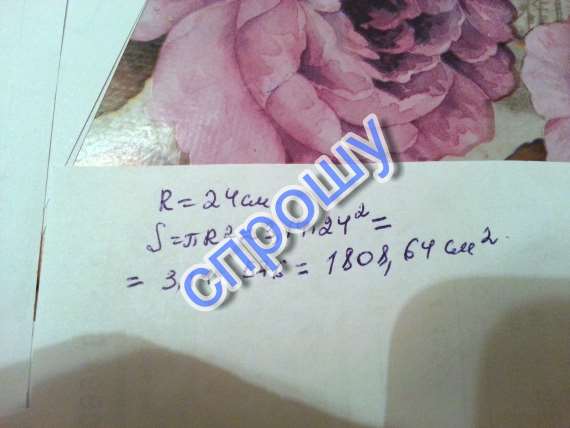 R = 24 см
S = πR² 24² =
= 3, = 1808,64 см².
спрошу